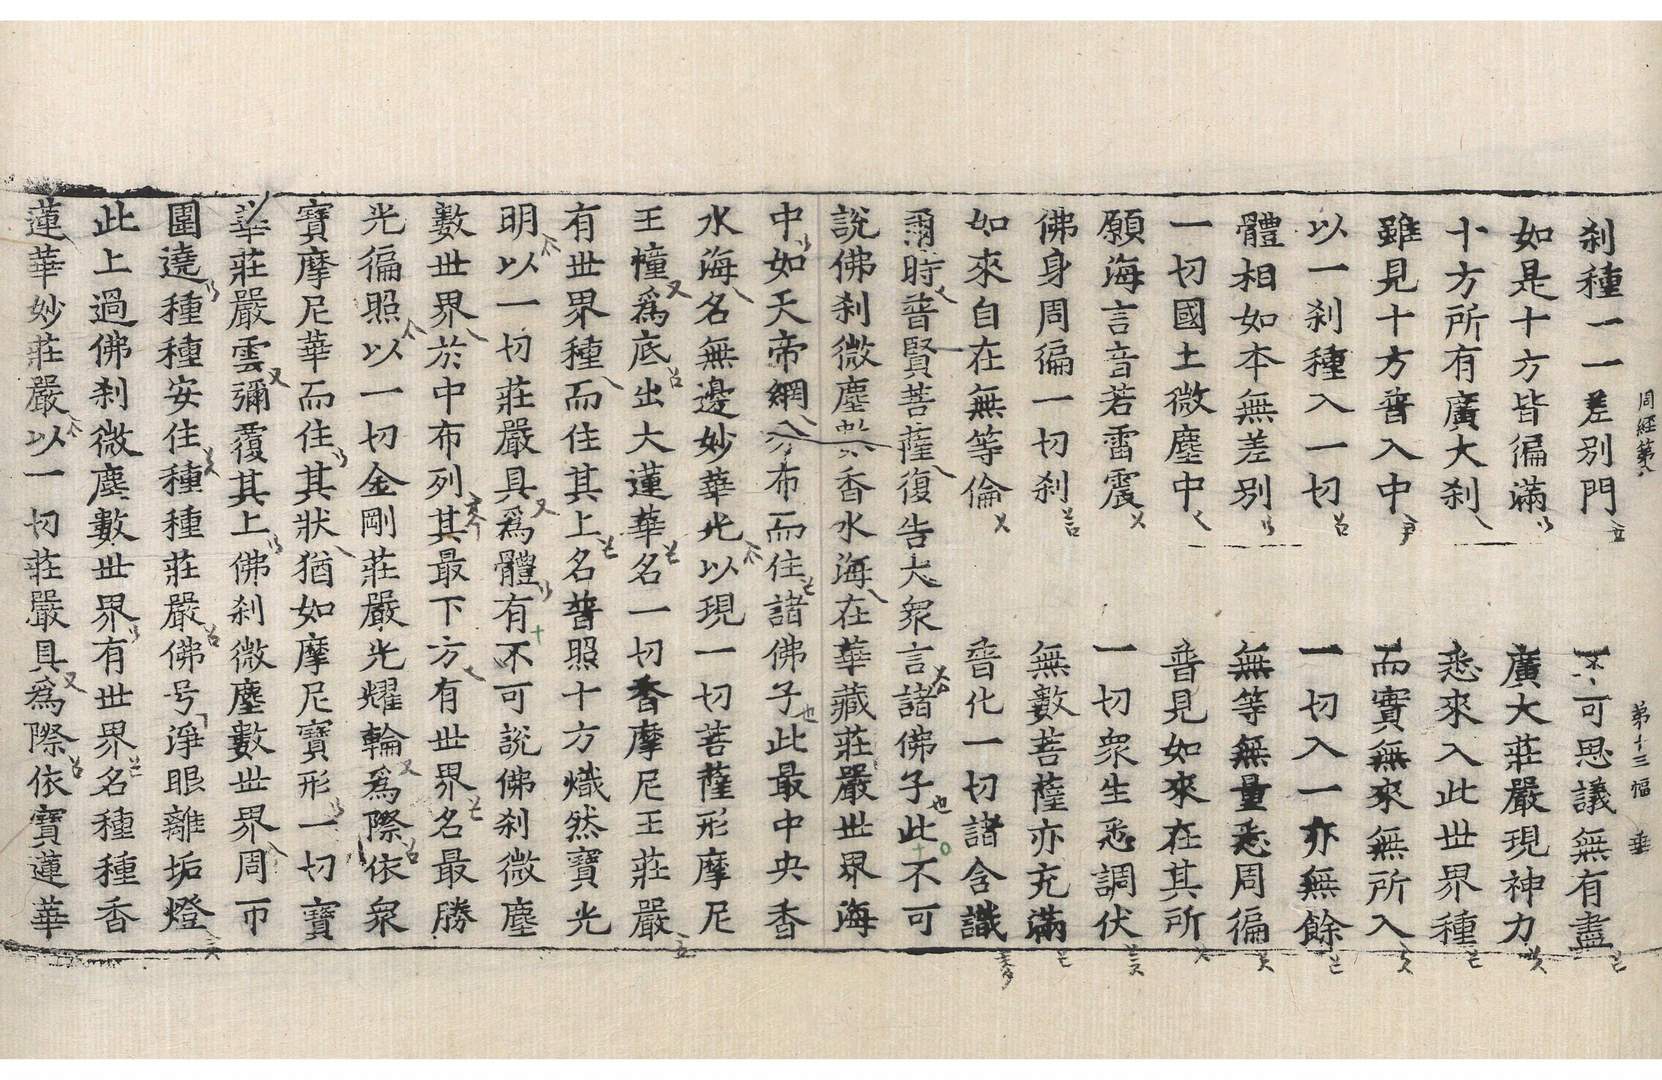 周經第八 第十三幅 垂
刹種一一差別門 不可思議無有盡
如是十方皆徧滿 廣大莊嚴現神力
十方所有廣大刹 悉來入此世界種
雖見十方普入中 而實無來無所入
以一刹種入一切 一切入一亦無餘
體相如本無差別 無等無量悉周徧
一切國土微塵中 普見如來在其所
願海言音若雷震 一切衆生悉調伏
佛身周徧一切刹 無數菩薩亦充滿
如來自在無等倫 普化一切諸含識
爾時普賢菩薩復告大衆言諸佛子此不可
說佛刹微塵數香水海在華藏莊嚴世界海
中如天帝網分布而住諸佛子此最中央香
水海名無邊妙華光以現一切菩薩形摩尼
王幢爲底出大蓮華名一切香摩尼王莊嚴
有世界種而住其上名普照十方熾然寶光
明以一切莊嚴具爲體有不可說佛刹微塵
數世界於中布列其最下方有世界名最勝
光徧照以一切金剛莊嚴光耀輪爲際依衆
寶摩尼華而住其狀猶如摩尼寶形一切寶
華莊嚴雲彌覆其上佛刹微塵數世界周帀
圍遶種種安住種種莊嚴佛号淨眼離垢燈
此上過佛刹微塵數世界有世界名種種香
蓮華妙莊嚴以一切莊嚴具爲際依寶蓮華